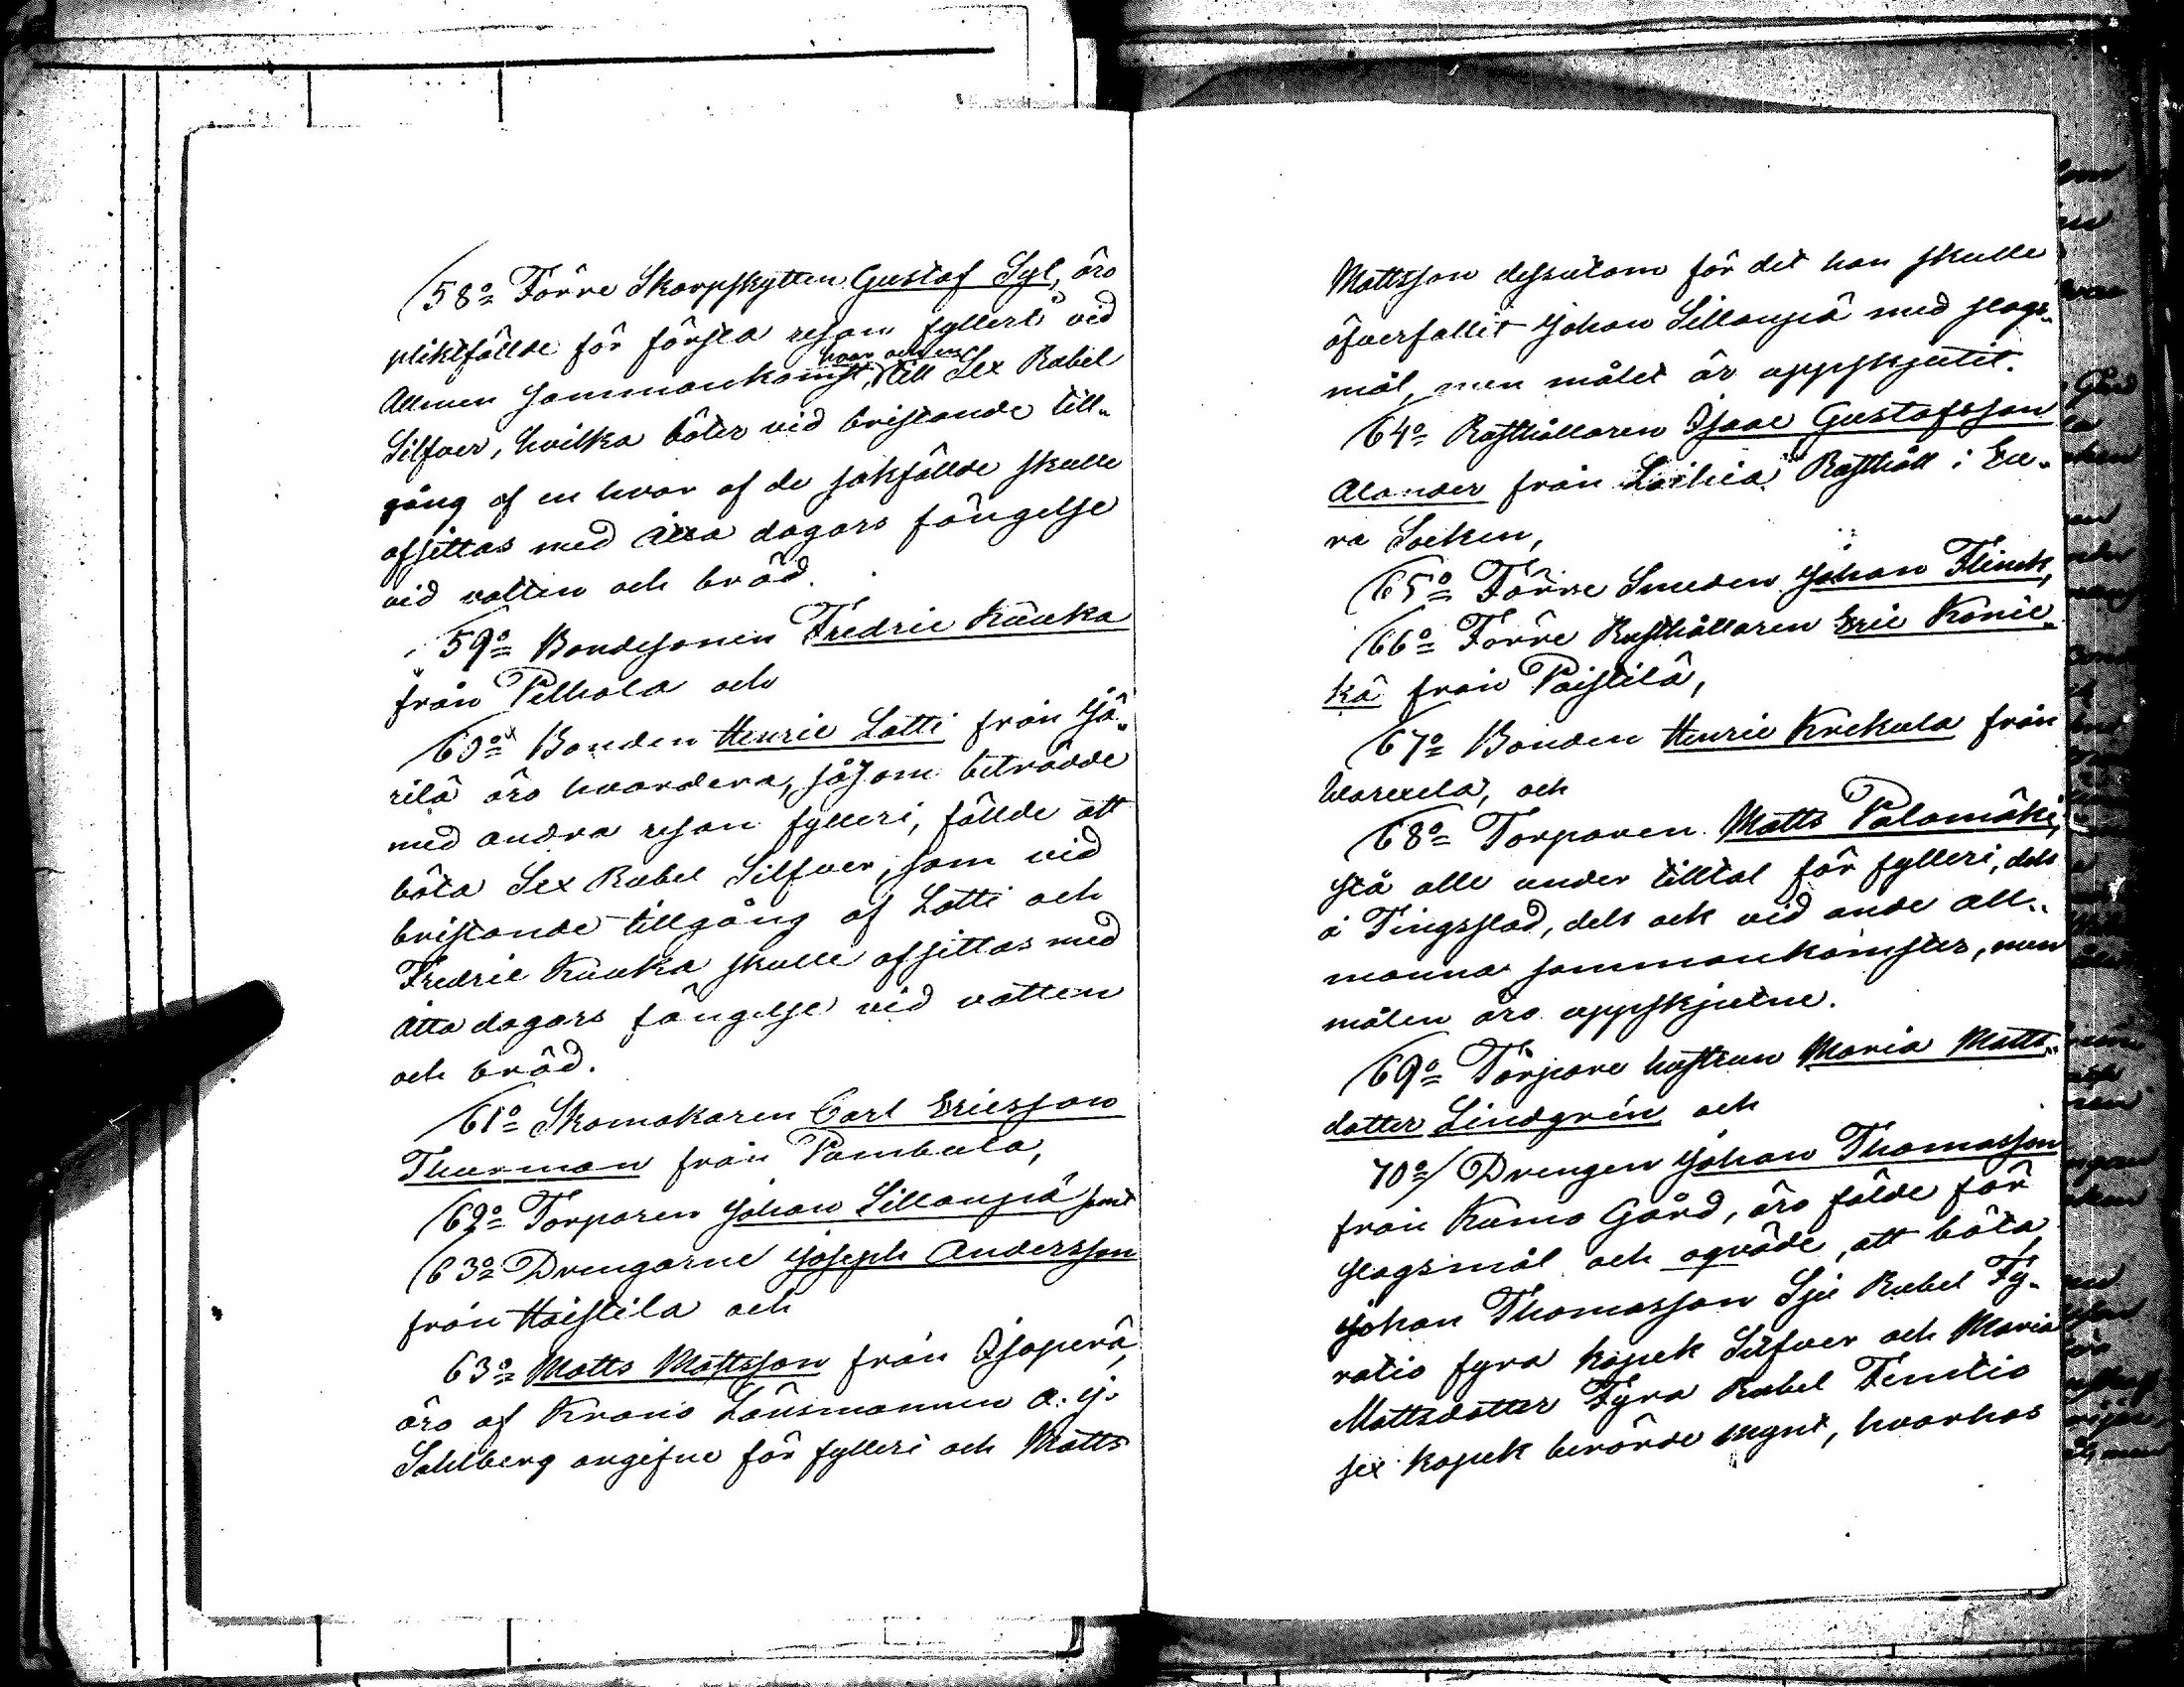 58o Förre Skarpskytten Gustaf Syl, äro
pliktfällde för första resan fylleri vid
Allmen sammankomst, hvar och en till Sex Rubel
Silfver, hvilka böter vid bristande till-
gång af en hvar af de sakfällde skulle
afsittas med åtta dagars fängelse
vid vatten och bröd.
59o Bondesonen Fredric Kuuka
från Pelhola och
60o Bonden Henric Latti från Jä-
rilä äro hvardera, såsom beträdde
med andra resan fylleri, fällde att
böta Sex Rubel Silfver, som vid
bristande tillgång af Latti och
Fredric Kuuka skulle afsittas med
åtta dagars fängelse vid vatten
och bröd.
61o Skomakaren Carl Ericsson
Thurman från Pambula,
62o Torparen Johan Sillanpää samt
63o Drengarne Joseph Andersson
från Haistila och
63o Matts Mattsson från Isoperä,
äro af Krono Länsmannen A. J.
Sahlberg angifne för fylleri och Matts
Mattsson dessutom för det han skulle
öfverfallit Johan Sillanpää med slags-
mål, men målet är uppskjutit.
64o Rusthållaren Isaac Gustafsson
Alander från Laihia Rusthåll i Eu-
ra Socken,
65o Förre Smeden Johan Flinck,
66o Förre Rusthållaren Eric Könic-
kä från Paistilä,
67o Bonden Henric Krekula från
och
68o Torparen Matts Palomäki,
stå alle under tilltal för fylleri, dels
å Tingsstad, dels ock vid ande all-
manna sammankomster, men
målen äro uppskjutne.
69o Torpare hustrun Maria Matts-
dotter Lindgrén och
70o Drengen Johan Thomasson
från Kumo Gård, äro fälde för
slagsmål och oqväde, att böta,
Johan Thomasson Sju Rubel Fy-
ratio fyra kopek Silfver och Maria
Mattsdotter Fyra Rubel Femtio
sex kopek berörde mynt, hvarhos